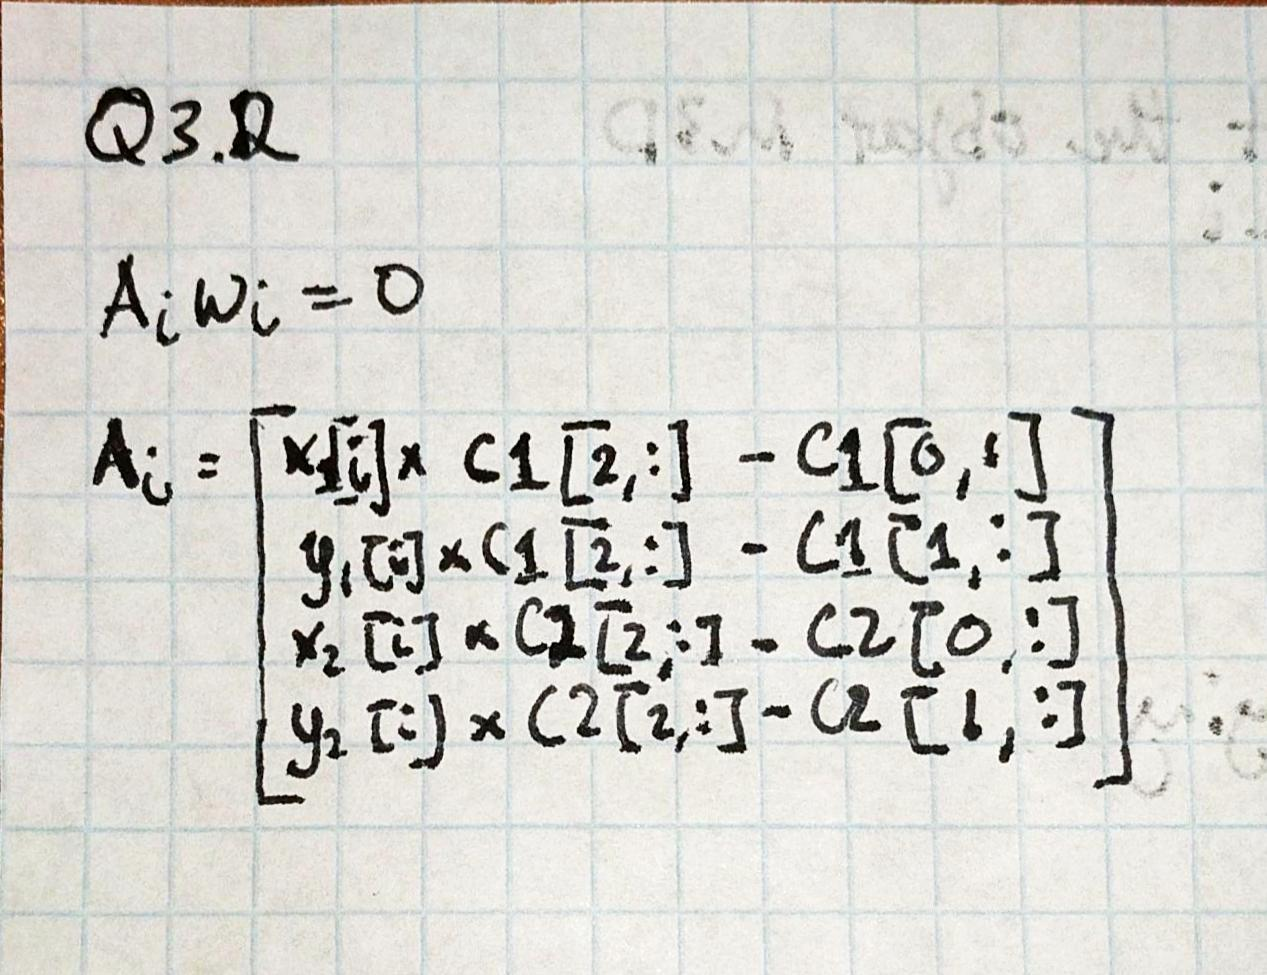 Q3.2
A_i w_i = 0
A_i = [ x_1[i] × C1[2,:] - C1[0,:]
y_1[i] × C1[2,:] - C1[1,:]
x_2[i] × C2[2,:] - C2[0,:]
y_2[i] × C2[2,:] - C2[1,:] ]